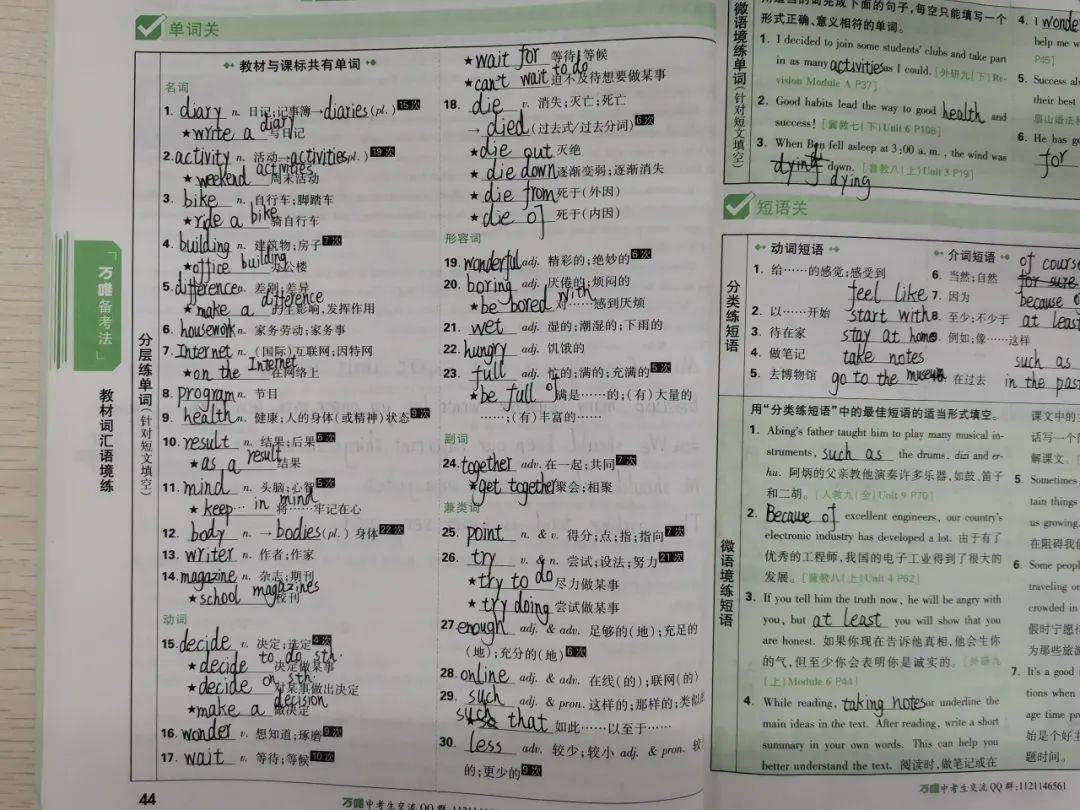 单词关
教材与课标共有单词
名词
1. diary n. 日记;记事簿→diaries(pl.) 15次
★write a diary 写日记
2. activity n. 活动→activities pl.) 19次
★weekend activities 周末活动
3. bike n. 自行车;脚踏车
★ride a bike 骑自行车
4. building n. 建筑物;房子 7次
★office building 办公楼
5. difference n. 差别;差异
★make a difference 的生影响,发挥作用
6. housework n. 家务劳动;家务事
7. Internet n. (国际)互联网;因特网
★on the Internet 在网络上
8. program n. 节目
9. health n. 健康;人的身体(或精神)状态 9次
10. result n. 结果;后果 6次
★as a result 结果
11. mind n. 头脑;心智 5次
★keep… in mind 将……牢记在心
12. body n. →bodies(pl.) 身体 22次
13. writer n. 作者;作家
14. magazine n. 杂志;期刊
★school magazines 校刊
动词
15. decide v. 决定;选定 4次
★decide to do sth. 决定做某事
★decide on sth. 对某事做出决定
★make a decision 做决定
16. wonder v. 想知道;琢磨 9次
17. wait v. 等待;等候 10次
44
★wait for 等待;等候
★can't wait to do 迫不及待想要做某事
18. die v. 消失;灭亡;死亡
→died(过去式/过去分词) 6次
★die out 灭绝
★die down 逐渐变弱;逐渐消失
★die from 死于(外因)
★die of 死于(内因)
形容词
19. wonderful adj. 精彩的;绝妙的 6次
20. boring adj. 厌倦的;烦闷的
★be bored with 对……感到厌烦
21. wet adj. 湿的;潮湿的;下雨的
22. hungry adj. 饥饿的
23. full adj. 忙的;满的;充满的 5次
★be full of 满是……的;(有)大量的
……;(有)丰富的……
副词
24. together adv. 在一起;共同 7次
★get together 聚会;相聚
兼类词
25. point n. & v. 得分;点;指;指向 7次
26. try v. & n. 尝试;设法;努力 21次
★try to do 尽力做某事
★try doing 尝试做某事
27. enough adj. & adv. 足够的(地);充足的
(地);充分的(地) 6次
28. online adj. & adv. 在线(的);联网(的)
29. such adj. & pron. 这样的;那样的;类似
such that 如此……以至于……
30. less adv. 较少;较小 adj. & pron. 较
的;更少的 9次
万唯中考生交流QQ群:
「万唯备考法」
教材词汇语境练
分层练单词(针对短文填空)
微语境练单词(针对短文填空)
形式正确、意义相符的单词。
1. I decided to join some students' clubs and take part
in as many activities as I could. [外研九(下) Re-
vision Module A P37]
2. Good habits lead the way to good health and
success! [冀教七(下) Unit 6 P108]
3. When Ben fell asleep at 3:00 a. m., the wind was
dying down. [冀教八(上) Unit 3 P19]
dying
4. I wonde
help me w
P45]
5. Success al
their best
眉山语法
6. He has g
for
短语关
分类练短语
动词短语
1. 给……的感觉;感受到
feel like
2. 以……开始 start with
3. 待在家 stay at home
4. 做笔记 take notes
5. 去博物馆 go to the museum
介词短语
6. 当然;自然 of course
for sure
7. 因为 because o
8. 至少;不少于 at least
例如;像……这样
such as
在过去 in the past
微语境练短语
用“分类练短语”中的最佳短语的适当形式填空。
1. Abing's father taught him to play many musical in-
struments, such as the drums, dizi and er-
hu. 阿炳的父亲教他演奏许多乐器,如鼓、笛子
和二胡。[人教九(全) Unit 9 P70]
2. Because of excellent engineers, our country's
electronic industry has developed a lot. 由于有了
优秀的工程师,我国的电子工业得到了很大的
发展。[冀教八(上) Unit 4 P62]
3. If you tell him the truth now, he will be angry with
you, but at least you will show that you
are honest. 如果你现在告诉他真相,他会生你
的气,但至少你会表明你是诚实的。[外研九
(上) Module 6 P44]
4. While reading, taking notes or underline the
main ideas in the text. After reading, write a short
summary in your own words. This can help you
better understand the text. 阅读时,做笔记或在
课文中的
话写一个
解课文。
5. Sometimes
tain things
us growing
在阻碍我
6. Some peopl
traveling o
crowded in
假时宁愿
为那些旅
7. It's a good
tions when
age time pr
始是个好
题时间。
万唯中考生交流QQ群:1121146561